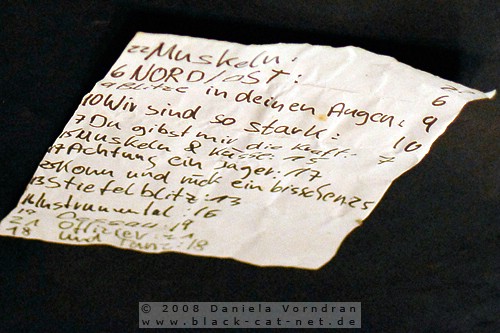 22 Muskeln: 22
6 NORD/OST: 6
9 Blitze in deinen Augen: 9
10 Wir sind so stark: 10
7 Du gibst mir die Kraft: 7
15 Muskeln & Küsse: 15
17 Achtung ein Jäger: 17
25 Komm und rück ein bisschen 25
13 Stiefelblitz: 13
16 Instrumental: 16
19 : 19
21 Offizier: 21
18 und Tanz: 18
© 2008 Daniela Vorndran
www.black-cat-net.de